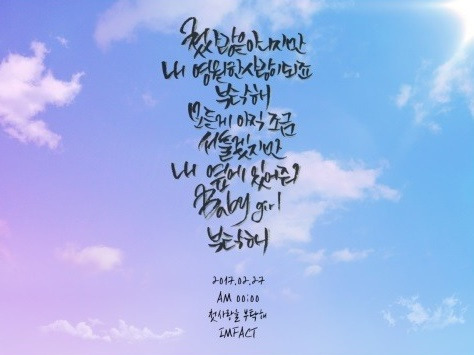 첫사랑은 아니지만
내 영원한 사랑이 되죠
부탁해
모든게 아직 조금
서툴겠지만
내 옆에 있어줘
Baby girl
부탁해
2017.02.27
AM 00:00
첫사랑을 부탁해
IMFACT